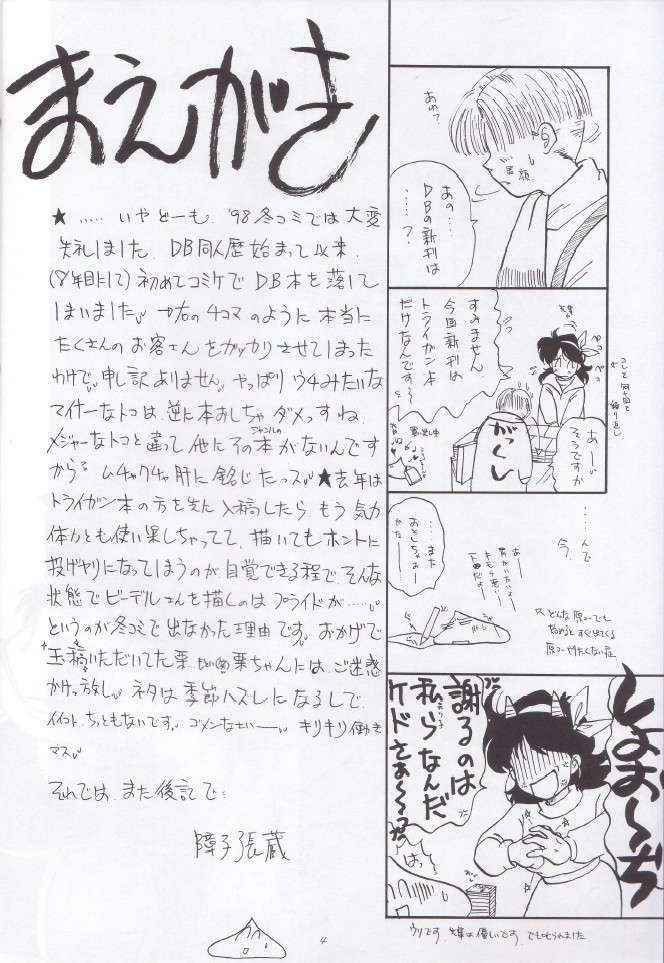 まえがき
★ ‥‥‥ いやどーも、'98冬コミでは大変
失礼しました。DB同人歴始まって以来、
(8年目にして)初めてコミケでDB本を落して
しまいました 右の4コマのように本当に
たくさんのお客さんをガッカリさせてしまった
わけで 申し訳ありません やっぱりウチみたいな
マイナーなトコは逆に本おしちゃダメっすね
メジャーなトコと違って他にそのジャンルの本がないんです
から ムチャクチャ肝に銘じたっス ★去年は
トライガン本の方を先に入稿したら もう気力
体力とも使い果しちゃってて、描いてもホントに
投げヤリになってしまうのが自覚できる程で、そんな
状態でビーデルさんを描くのはプライドが‥‥
というのが冬コミで出なかった理由です。おかげで
玉稿いただいてた栗 栗ちゃんには、ご迷惑
かけっ放し ネタは季節ハズレになるしで、
イイコト、ちっともないです。ゴメンなさいー キリキリ働き
マス
それでは、また後記で
障子張蔵
あれ?
あの‥‥
DBの新刊は
‥‥‥?
笑顔
すみません、
今回新刊は
トライガン本
だけなんです〜
ペコ
ペコ
あー
そうですか
がっくし
‥‥‥んで
今、
‥‥また
おとしちゃおー
かなー
どんな原コーでも
始めるとすぐ出てくる
原コーやりたくない症
しょお〜ぢ
謝るのは
私らなんだ
ケドさぁ〜〜
はっ
ウリです。先輩は優しいです。でも叱られました
4